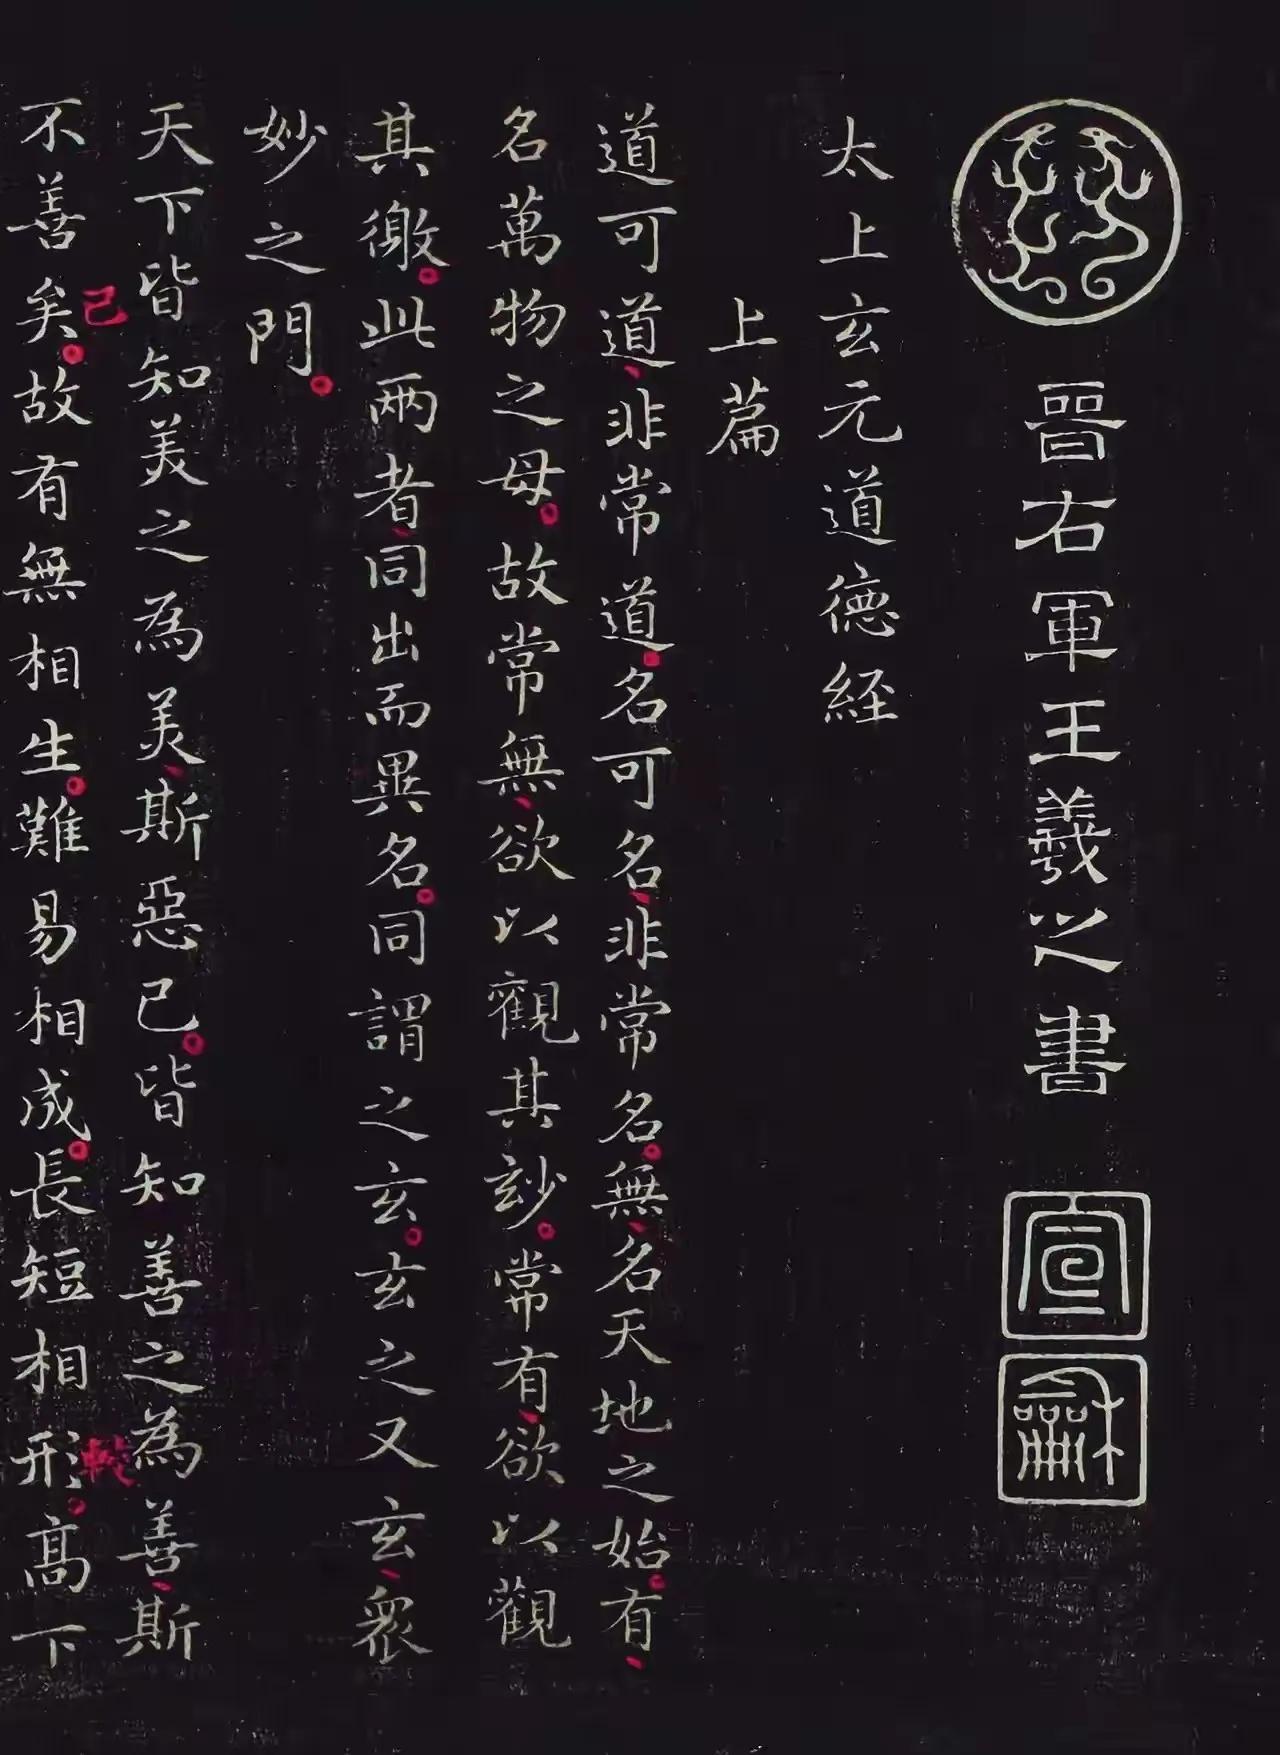 晉右軍王羲之書
宣
龢
太上玄元道德経
上篇
道可道、非常道。名可名、非常名。無、名天地之始。有、
名萬物之母。故常無、欲以觀其玅。常有、欲以觀
其徼。此兩者、同出而異名。同謂之玄。玄之又玄、衆
妙之門。
天下皆知美之為美、斯惡已。皆知善之為善、斯
不善矣。己故有無相生。難易相成。長短相形。較高下